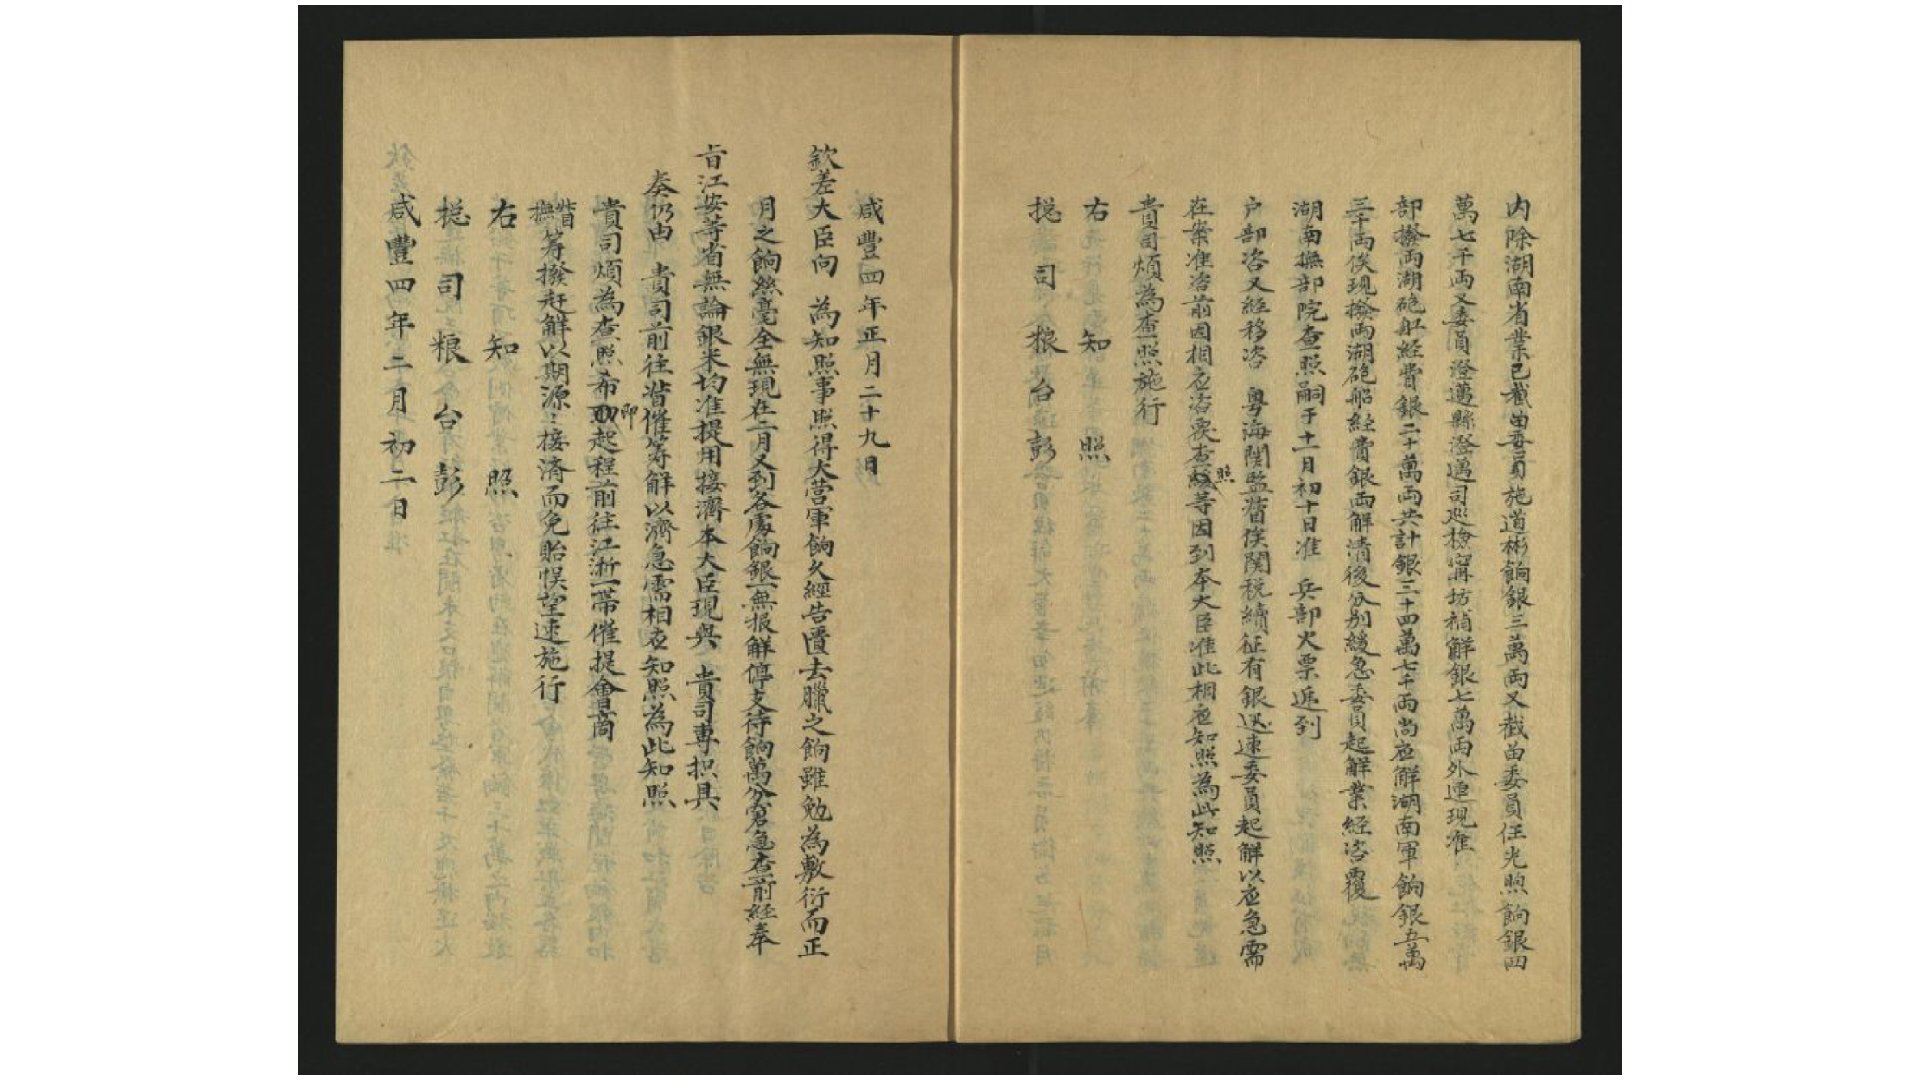 内除湖南省業已截留委員施道彬餉銀三萬両又截留委員任光煦餉銀四
萬七千両又委員澄邁縣澄邁司巡檢甯坊補觧銀七萬両外連現准
部撥両湖砲舡經費銀二十萬両共計銀三十四萬七千両尚應觧湖南軍餉銀五萬
三千両俟現撥両湖砲船經費銀両解清後分别緩急委員起觧業經咨覆
湖南撫部院查照嗣于十一月初十日准 兵部火票逓到
户部咨又經移咨 粤海関監督俟関税續征有銀迅速委員起解以應急需
在案准咨前因相應咨覆查照等因到本大臣准此相應知照為此知照
貴司煩為查照施行
右 知 照
捴 司 粮 台 彭
咸豐四年正月二十九日
欽差大臣向 為知照事照得大营軍餉久經告匱去臘之餉雖勉為敷衍而正
月之餉絲毫全無現在二月又到各處餉銀一無报觧停支待餉萬分窘急查前經奉
旨江安等省無論銀米均准提用接濟本大臣現與 貴司專摺具
奏仍由 貴司前往督催筹解以濟急需相應知照為此知照
貴司煩為查照希即起程前往江浙一帯催提會商
督撫筹撥赶解以期源〻接済而免貽悮望速施行
右 知 照
捴 司 粮 台 彭
咸豐四年二月初二日